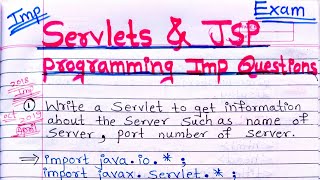 Imp
Exam
Servlets & JSP
programming Imp Questions
2018
Oct 2019
April
① Write a Servlet to get information
about the Server such as name of
Server, port number of server.
⇒ import java.io.*;
import javax.Servlet.*;